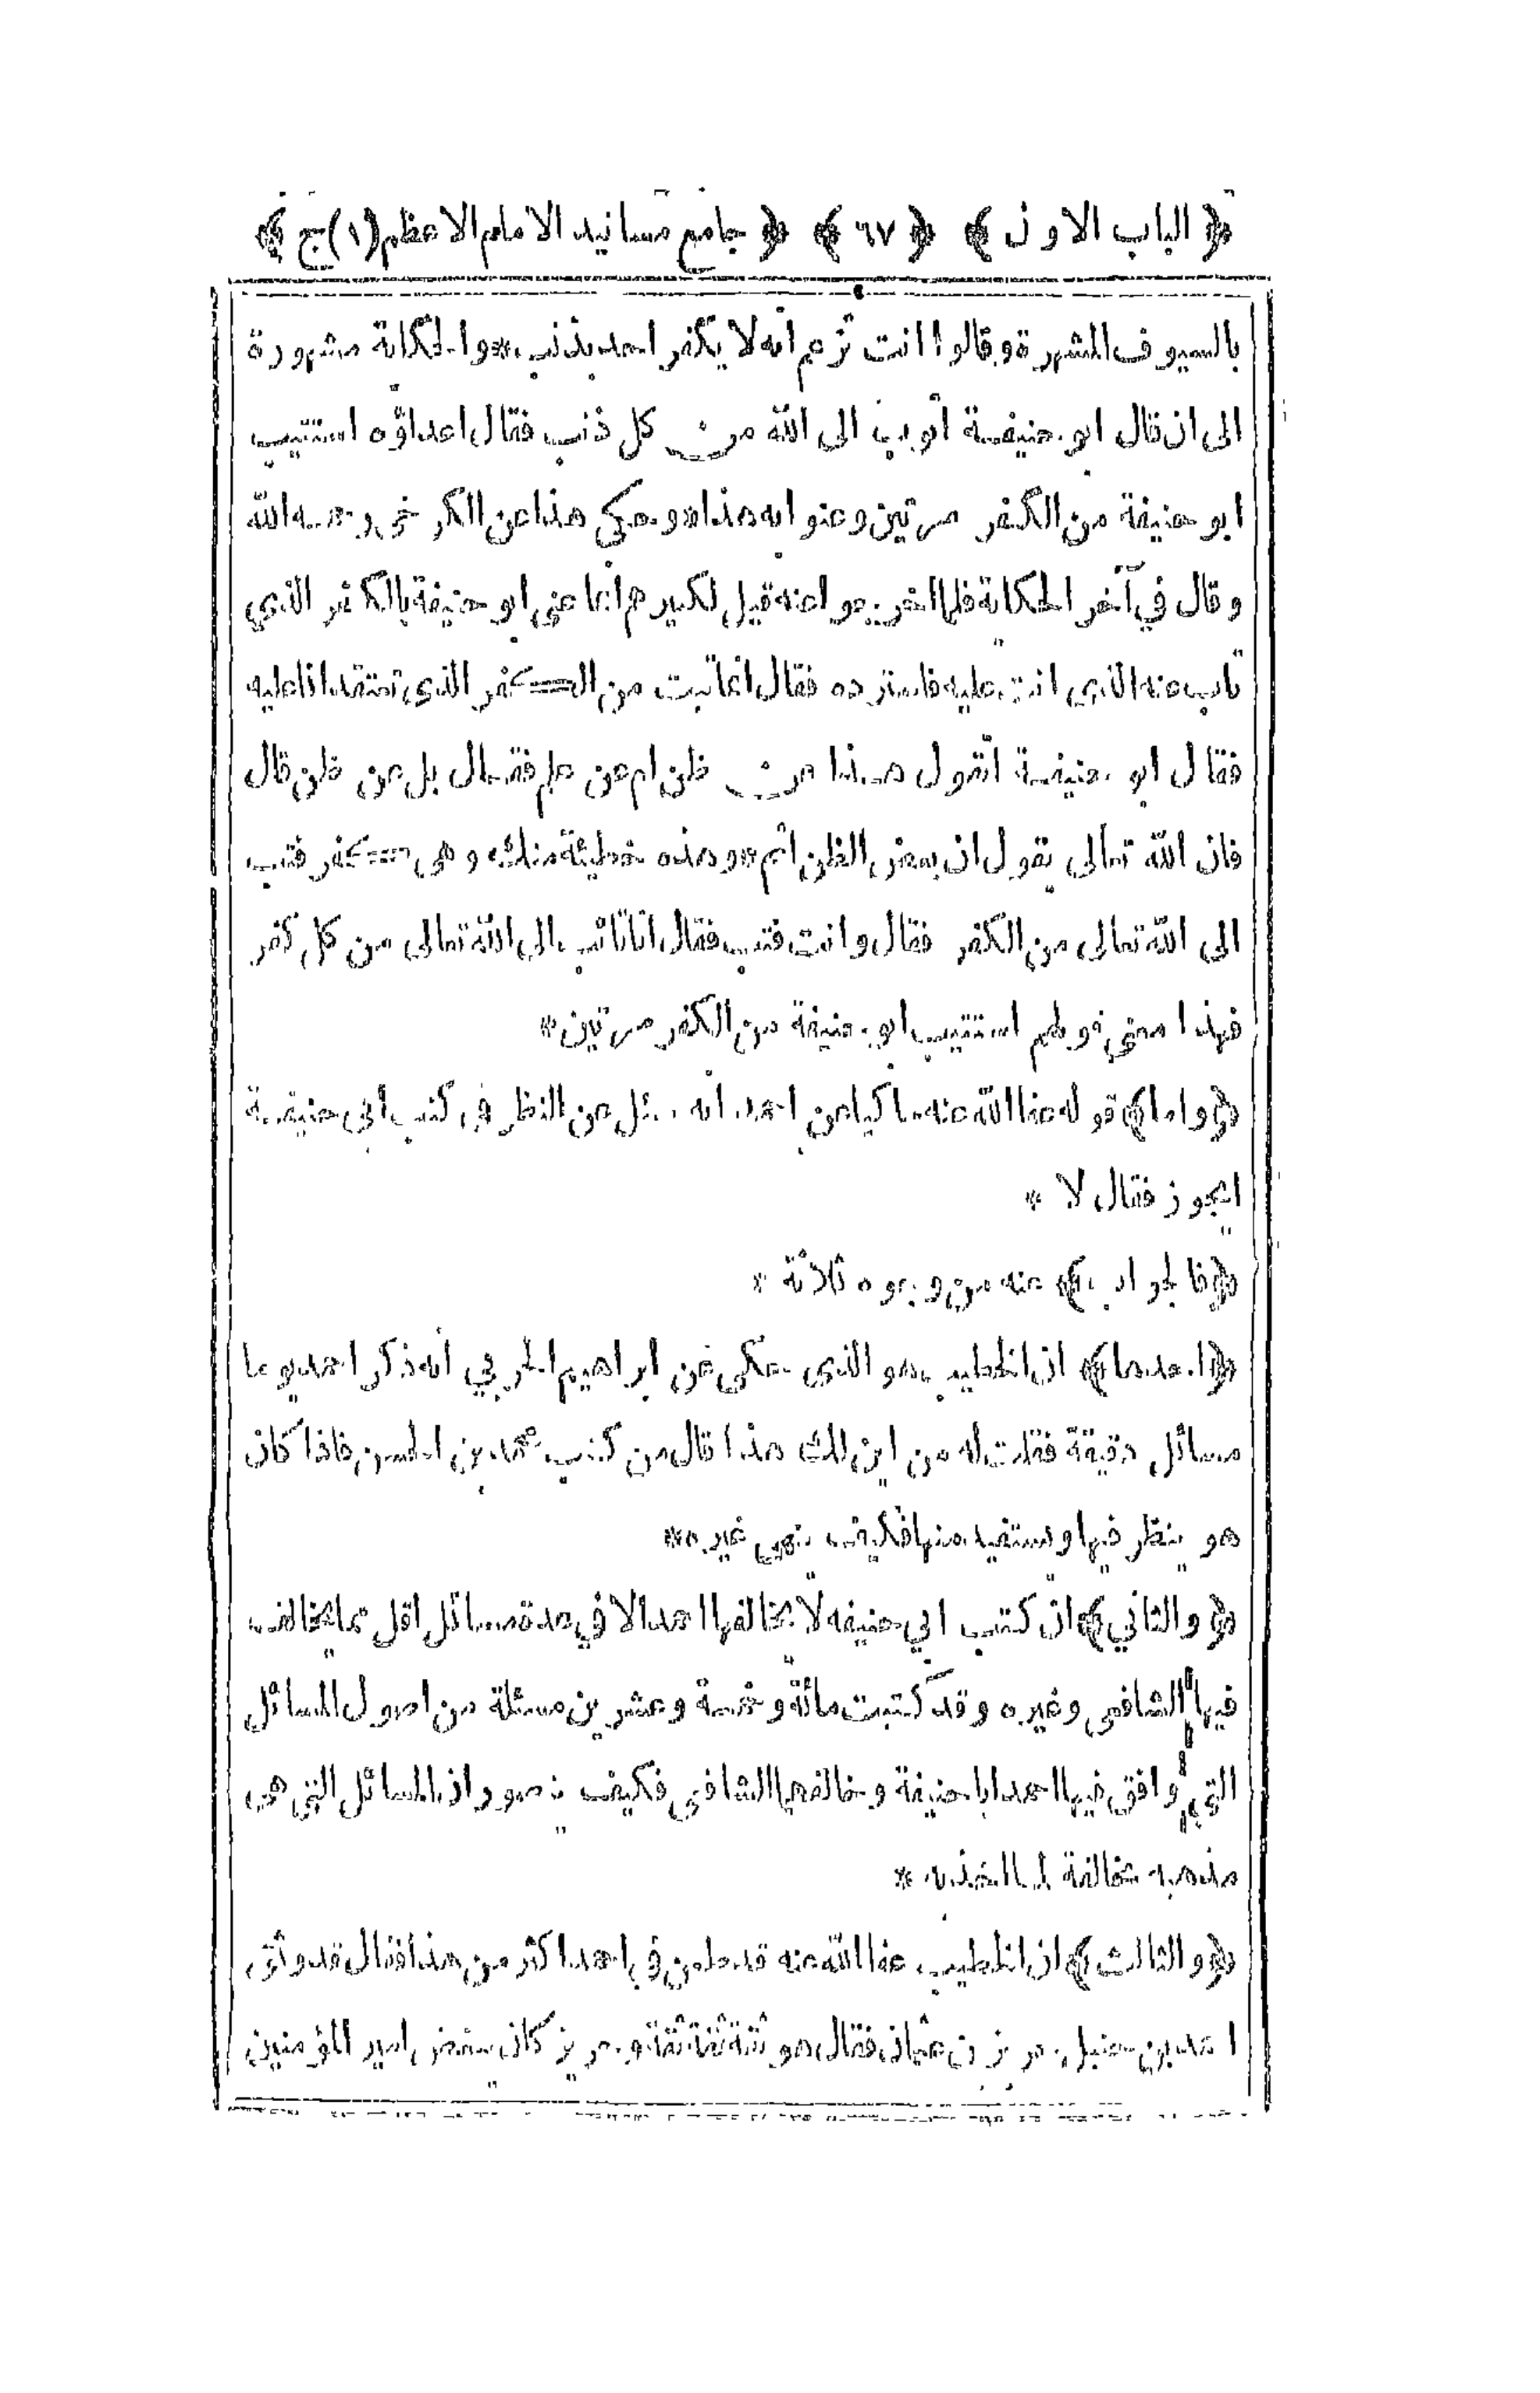 ﴿ الباب الاول ﴾ ﴿ ٦٧ ﴾ ﴿ جامع مسانيد الامام الاعظم (١) ج ﴾
بالسيوف المشهرة وقالوا انت تزعم انه لا يكفر احد بذنب * والحكاية مشهورة
الى ان قال ابو حنيفة اتوب الى الله من كل ذنب فقال اعداؤه استتيب
ابو حنيفة من الكفر مرتين وعنوا به هذا * وحكى هذا عن الكرخي رحمه الله
وقال في آخر الحكاية فلما اخرجوا عنه قيل لكبيرهم انما عنى ابو حنيفة بالكفر الذي
تاب عنه الذى انت عليه فاسترده فقال انما تبت من الكفر الذى تعتقد انا عليه
فقال ابو حنيفة اتقول هذا من ظن ام عن علم فقال بل عن ظن قال
فان الله تعالى يقول ان بعض الظن اثم * وهذه خطيئة منك وهى كفر فتب
الى الله تعالى من الكفر فقال وانت فتب فقال انا تائب الى الله تعالى من كل كفر
فهذا معنى قولهم استتيب ابو حنيفة من الكفر مرتين *
﴿ واما ﴾ قوله عفا الله عنه حاكيا عن احمد انه سئل عن النظر في كتب ابى حنيفة
ايجوز فقال لا *
﴿ فالجواب ﴾ عنه من وجوه ثلاثة *
﴿ احدها ﴾ ان الخطيب هو الذى حكى عن ابراهيم الحربي انه ذكر احمد يوما
مسائل دقيقة فقلت له من اين لك هذا قال من كتب محمد بن الحسن فاذا كان
هو ينظر فيها ويستفيد منها فكيف ينهى غيره *
﴿ والثاني ﴾ ان كتب ابي حنيفه لا يخالفها احمد الا في عدة مسائل اقل مما يخالف
فيها الشافعى وغيره وقد كتبت مائة وخمسة وعشرين مسئلة من اصول المسائل
التي وافق فيها احمد ابا حنيفة وخالفهما الشافعى فكيف يتصور ان المسائل التي هى
مذهبه مخالفة لمذهبه *
﴿ والثالث ﴾ ان الخطيب عفا الله عنه قد طعن في احمد اكثر من هذا فقال قد وثق
احمد بن حنبل حريز بن عثمان فقال هو ثقة ثقة ثقة وحريز كان يبغض امير المؤمنين